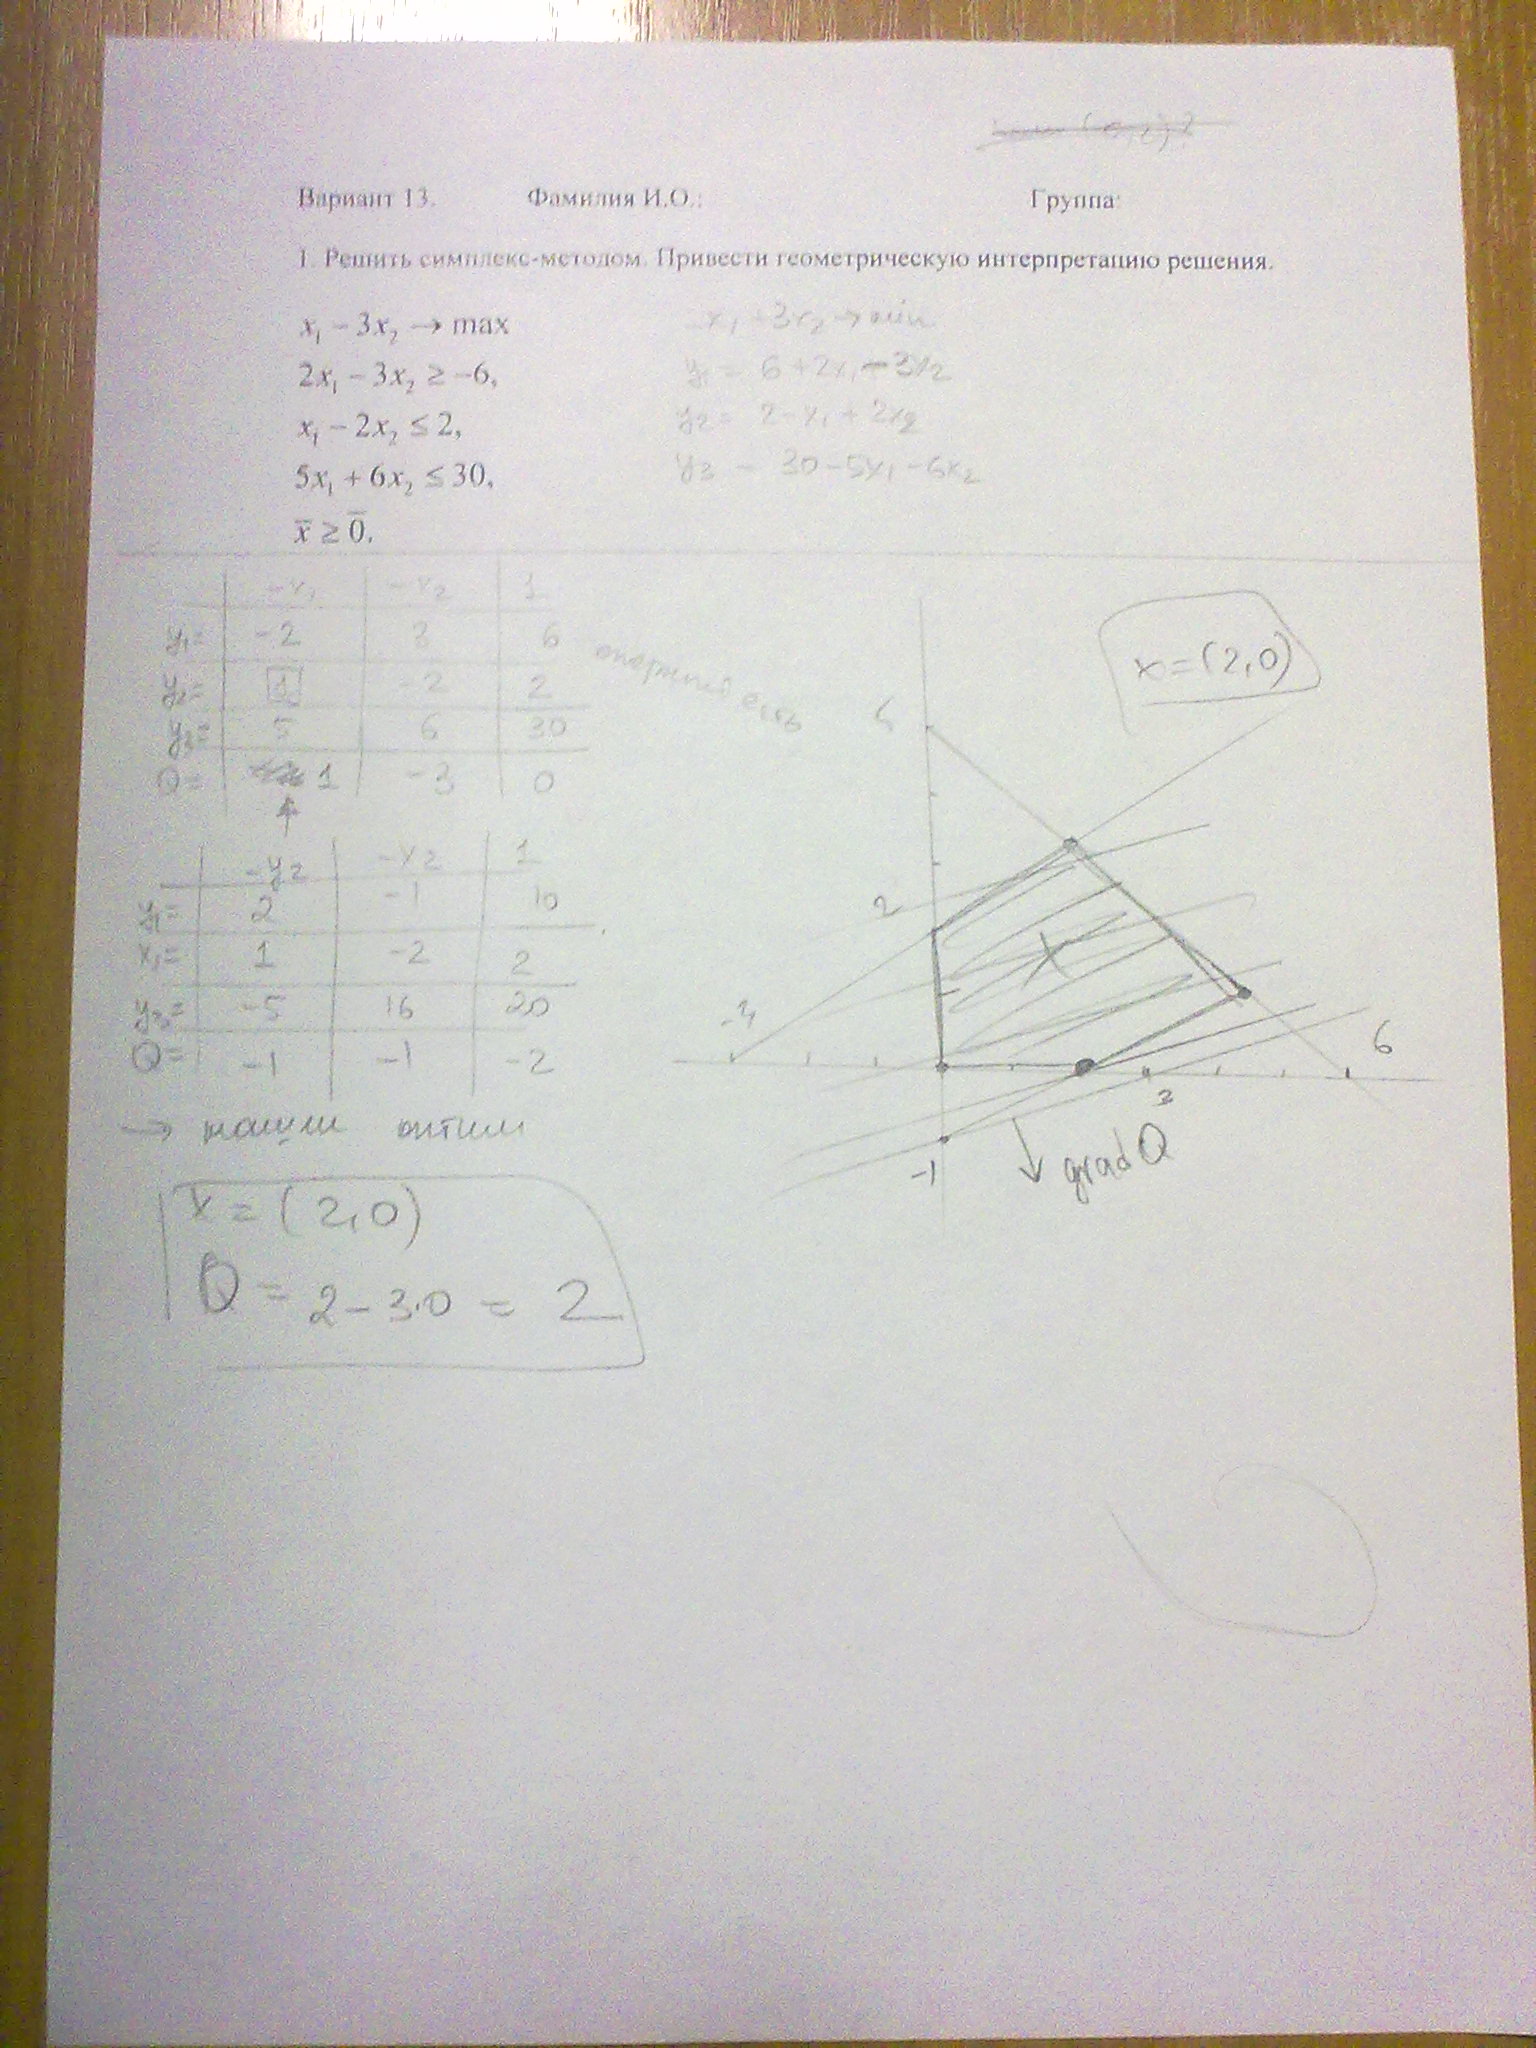 Вариант 13. Фамилия И.О.: Группа:
1. Решить симплекс-методом. Привести геометрическую интерпретацию решения.
x₁ − 3x₂ → max
2x₁ − 3x₂ ≥ −6,
x₁ − 2x₂ ≤ 2,
5x₁ + 6x₂ ≤ 30,
x̄ ≥ 0̄.
−x₁ + 3x₂ → min
y₁ = 6 + 2x₁ − 3x₂
y₂ = 2 − x₁ + 2x₂
y₃ = 30 − 5x₁ − 6x₂
−x₁ −x₂ 1
y₁= −2 3 6
y₂= 1 −2 2
y₃= 5 6 30
Q= 1 −3 0
опорный есть
−y₂ −x₂ 1
y₁= 2 −1 10
x₁= 1 −2 2
y₃= −5 16 20
Q= −1 −1 −2
→ нашли оптим
x = (2,0)
Q = 2 − 3·0 = 2
x = (2,0)
2
−3
6
3
−1
grad Q